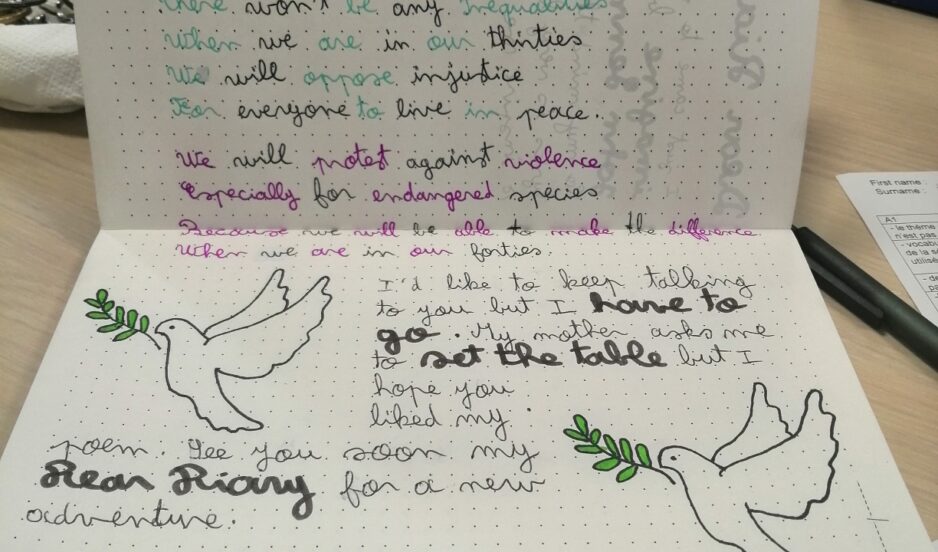 there won't be any inequalities
When we are in our thirties
We will oppose injustice
For everyone to live in peace.
We will protest against violence
Especially for endangered species
Because we will be able to make the difference
When we are in our forties.
I'd like to keep talking
to you but I have to
go. My mother asks me
to set the table but I
hope you
liked my
poem. See you soon my
Dear Diary for a new
adventure.
First name
Surname
A1
- le thème
n'est pas
- vocabu
de la s
utilisé
- de
pa